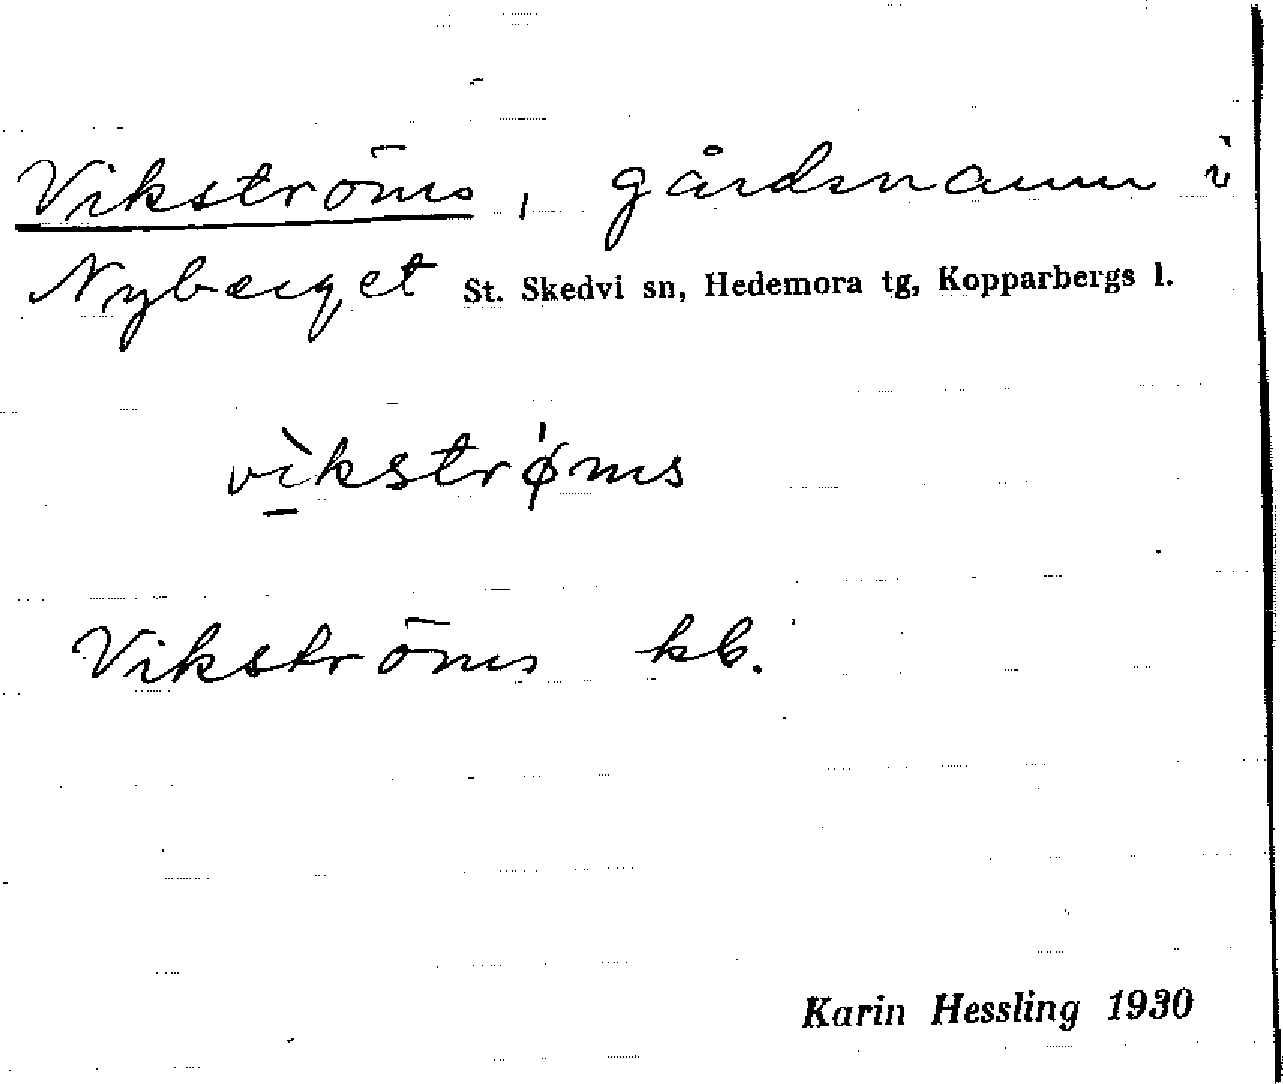 Vikströms, gårdsnamn i
Nyberget St. Skedvi sn, Hedemora tg, Kopparbergs l.
vìkstrøms
Vikströms kb.
Karin Hessling 1930